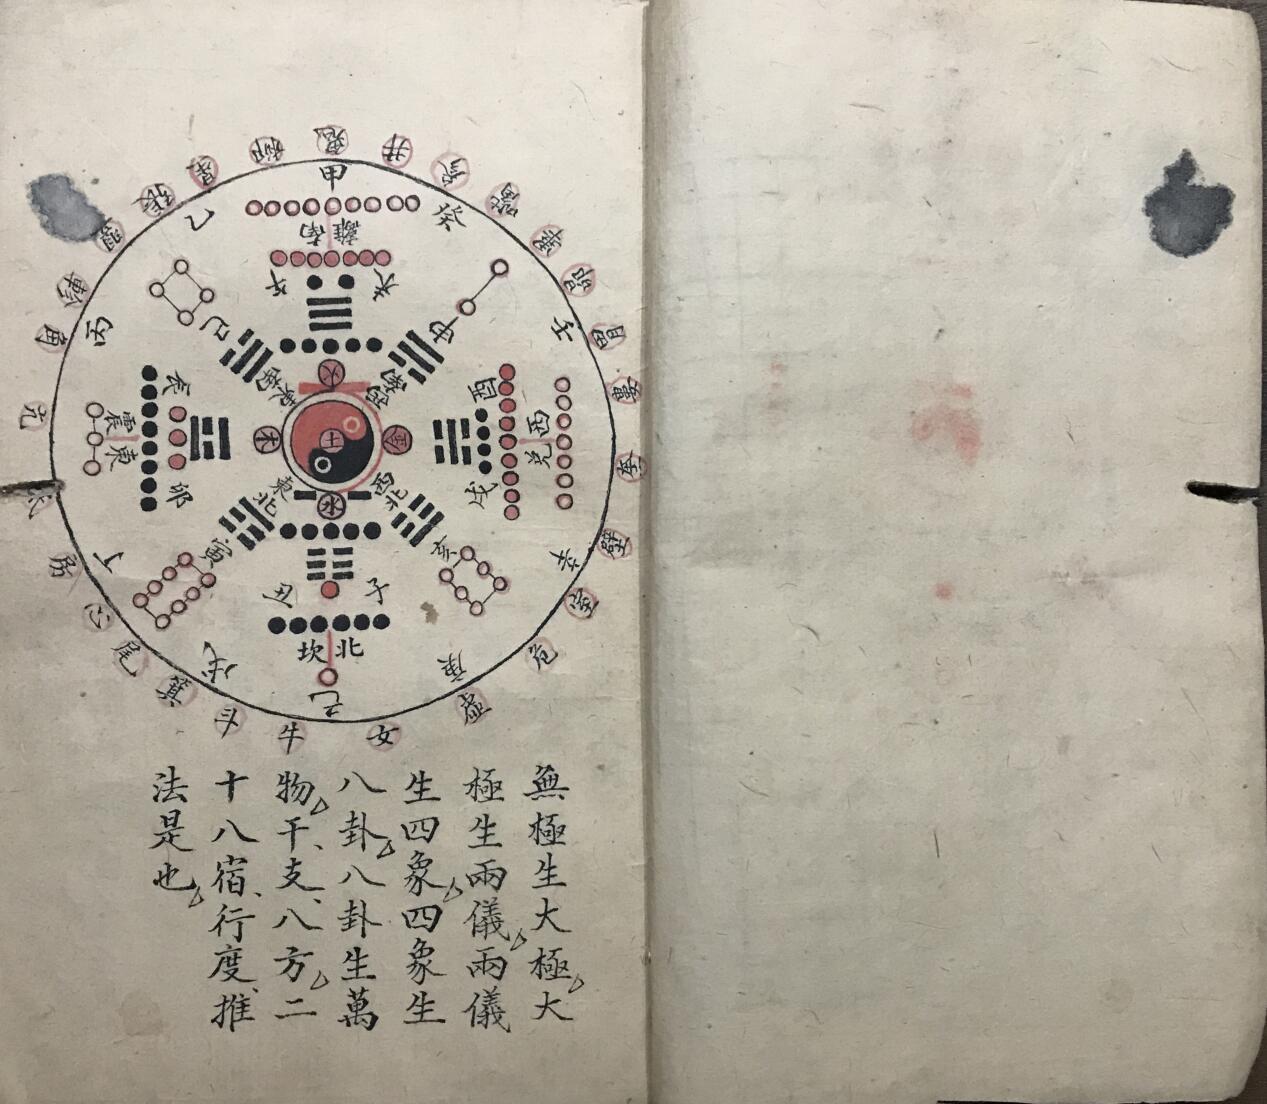 鬼
井
參
觜
畢
昴
胃
婁
奎
壁
室
危
虛
女
牛
斗
箕
尾
心
房
氐
亢
角
軫
翼
張
星
柳
甲
癸
壬
辛
庚
己
戊
丁
丙
乙
離南
午
未
申
酉
西兑
戌
亥
子
丑
北坎
寅
卯
震東
辰
巳
東南
西南
西北
東北
火
金
水
木
土
無極生大極大
極生兩儀兩儀
生四象四象生
八卦八卦生萬
物干、支、八方二
十八宿、行度、推
法是也